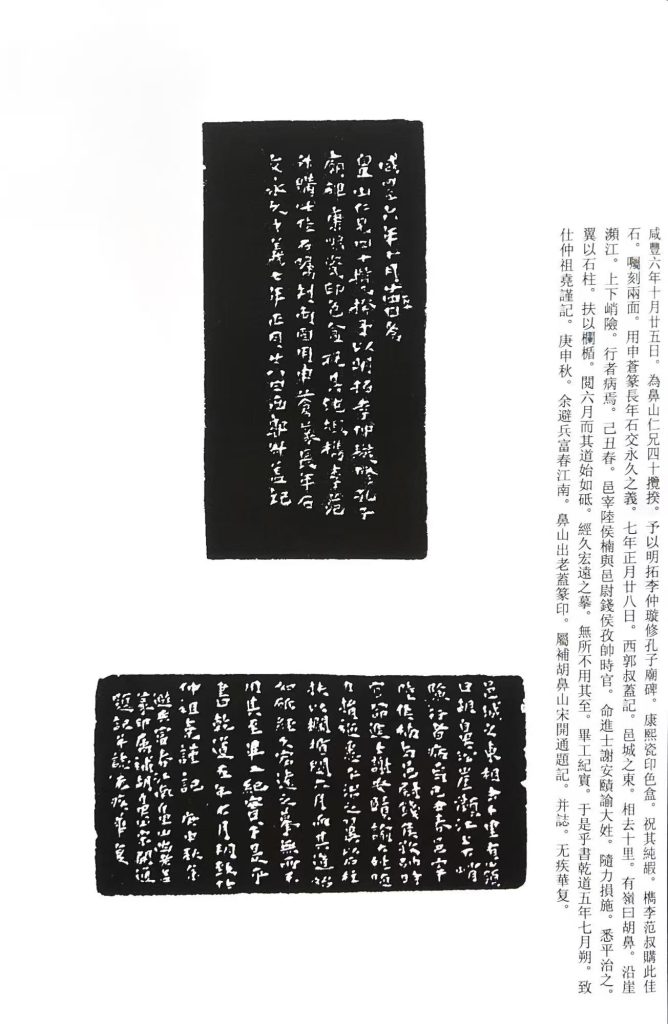 咸豐六年十月廿五日。為鼻山仁兄四十攬揆。予以明拓李仲璇修孔子廟碑。康熙瓷印色盒。祝其純嘏。檇李范叔購此佳
石。囑刻兩面。用申蒼篆長年石交永久之義。七年正月廿八日。西郭叔蓋記。邑城之東。相去十里。有嶺曰胡鼻。沿崖
瀕江。上下峭險。行者病焉。己丑春。邑宰陸侯楠與邑尉錢侯孜帥時官。命進士謝安頤諭大姓。隨力損施。悉平治之。
翼以石柱。扶以欄楯。閱六月而其道始如砥。經久宏遠之摹。無所不用其至。畢工紀實。于是乎書乾道五年七月朔。致
仕仲祖堯謹記。庚申秋。余避兵富春江南。鼻山出老蓋篆印。屬補胡鼻山宋開通題記。并誌。无疾華复。
咸豐六年十月廿五日為
鼻山仁兄四十攬揆予以明拓李仲璇修孔子
廟碑康熙瓷印色盒祝其純嘏檇李范
叔購此佳石囑刻兩面用申蒼篆長年石
交永久之義七年正月廿八日西郭叔蓋記
邑城之東相去十里有嶺
曰胡鼻沿崖瀕江上下峭
險行者病焉己丑春邑宰
陸侯楠與邑尉錢侯孜帥時
官命進士謝安頤諭大姓隨
力損施悉平治之翼以石柱
扶以欄楯閱六月而其道始
如砥經久宏遠之摹無所不
用其至畢工紀實于是乎
書乾道五年七月朔致仕
仲祖堯謹記 庚申秋余
避兵富春江南鼻山出老蓋
篆印屬補胡鼻山宋開通
題記并誌无疾華复